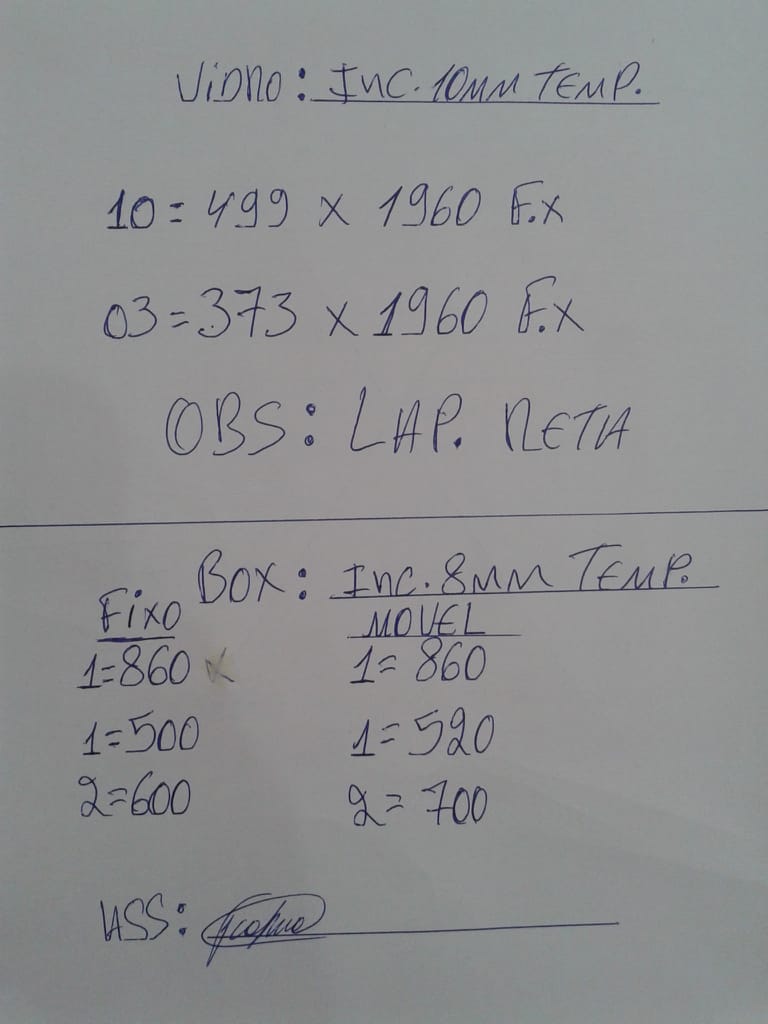 VIDRO: INC. 10MM TEMP.
10 = 499 x 1960 F.x
03 = 373 x 1960 F.x
OBS: LAP. RETA
BOX: INC. 8MM TEMP.
FIXO MOVEL
1=860 x 1= 860
1=500 1= 520
2=600 2= 700
ASS: